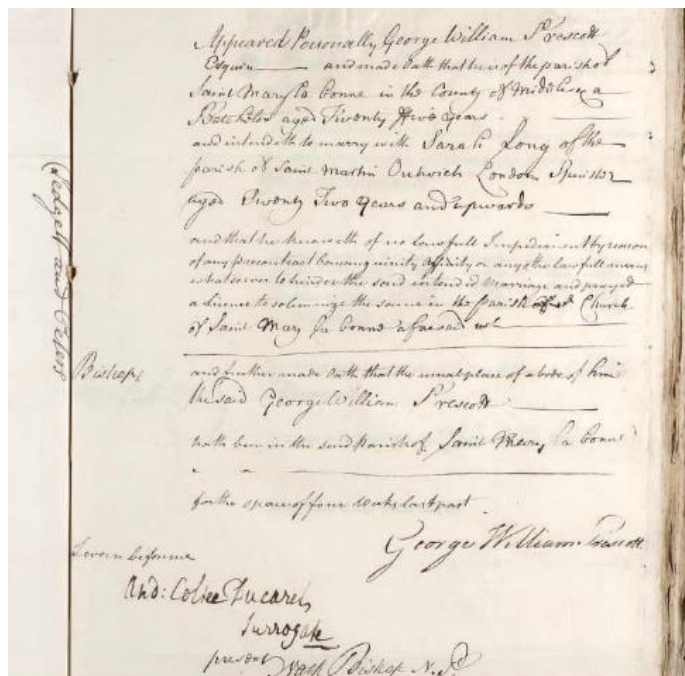 Appeared Personally George William Prescott
Esquire and made Oath that he is of the parish of
Saint Mary La bonne in the County of Middlesex a
Batchelor aged Twenty years
and intendeth to marry with Sarah Long of the
parish of Saint Martin Outwich London Spinster
aged Twenty Two years and upwards
and that he knoweth of no lawfull Impediment by reason
of any precontract Consanguinity Affinity or any other lawfull means
whatsoever to hinder the said intended Marriage and prayed
a Licence to solemnize the same in the parish Church
of Saint Mary La bonne aforesaid
Bishop
and further made Oath that the usual place of abode of him
the said George William Prescott
hath been in the said Parish of Saint Mary La bonne
for the space of four Weeks last past
George William Prescott
Sworn before me
And: Coltee Ducarel
Surrogate
present Bishop N. P.